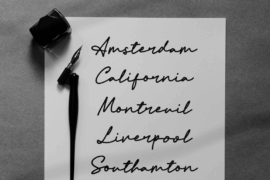 Amsterdam
California
Montrevil
Liverpool
Southamton